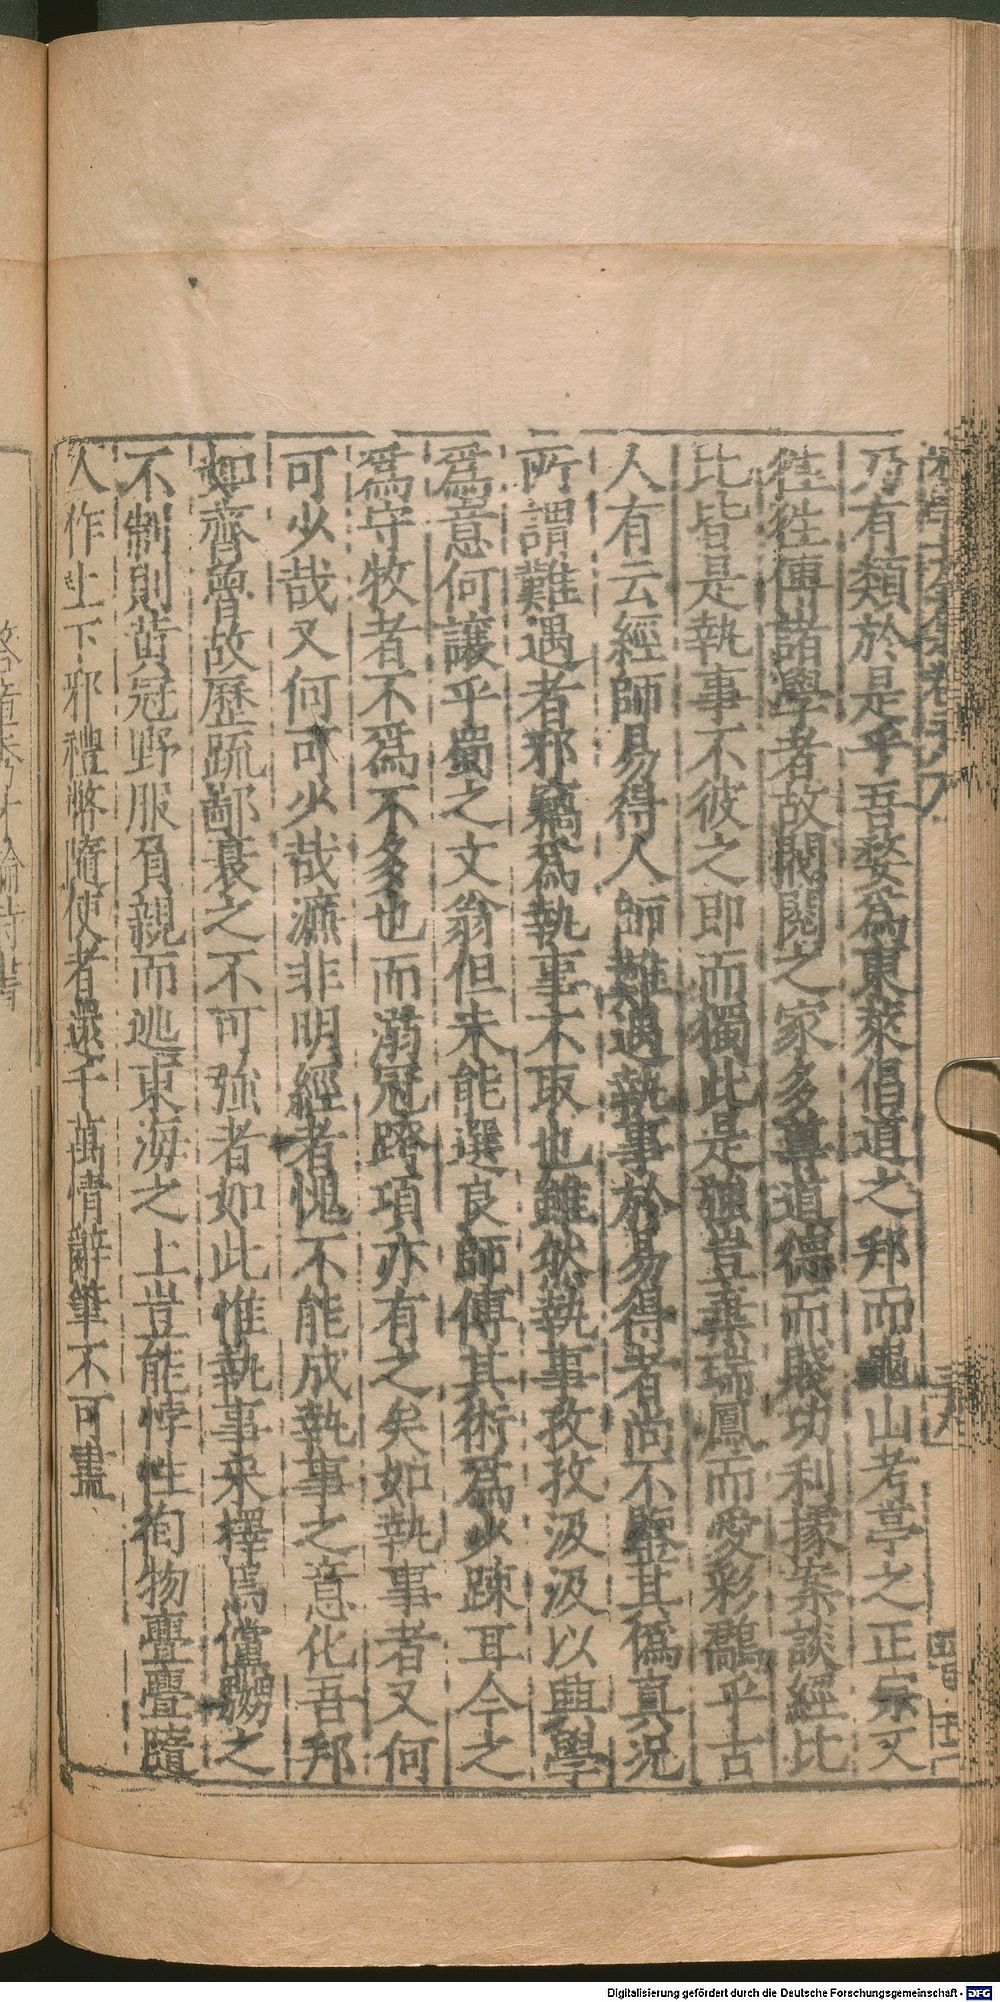 乃有類於是乎吾婺為東萊倡道之邦而龜山考亭之正宗又
徃徃傳諸學者故閥閱之家多尊道德而賤功利據案談經比
比皆是執事不彼之即而獨此是強豈棄瑞鳳而愛彩鷸乎古
人有云經師易得人師難遇執事於易得者尚不鑒其偽真況
所謂難遇者邪竊為執事不取也雖然執事孜孜汲汲以興學
為意何讓乎蜀之文翁但未能選良師傅其術為少踈耳今之
為守牧者不為不多也而溺冠跨項亦有之矣如執事者又何
可少哉又何可少哉濂非明經者愧不能成執事之意化吾邦
如齊魯故歷疏鄙衰之不可強者如此惟執事采擇焉儻嬲之
不制則黃冠野服負親而逃東海之上豈能悖性徇物亹亹隨
人作上下邪禮幣隨使者還千萬情辭筆不可盡
Digitalisierung gefördert durch die Deutsche Forschungsgemeinschaft - DFG